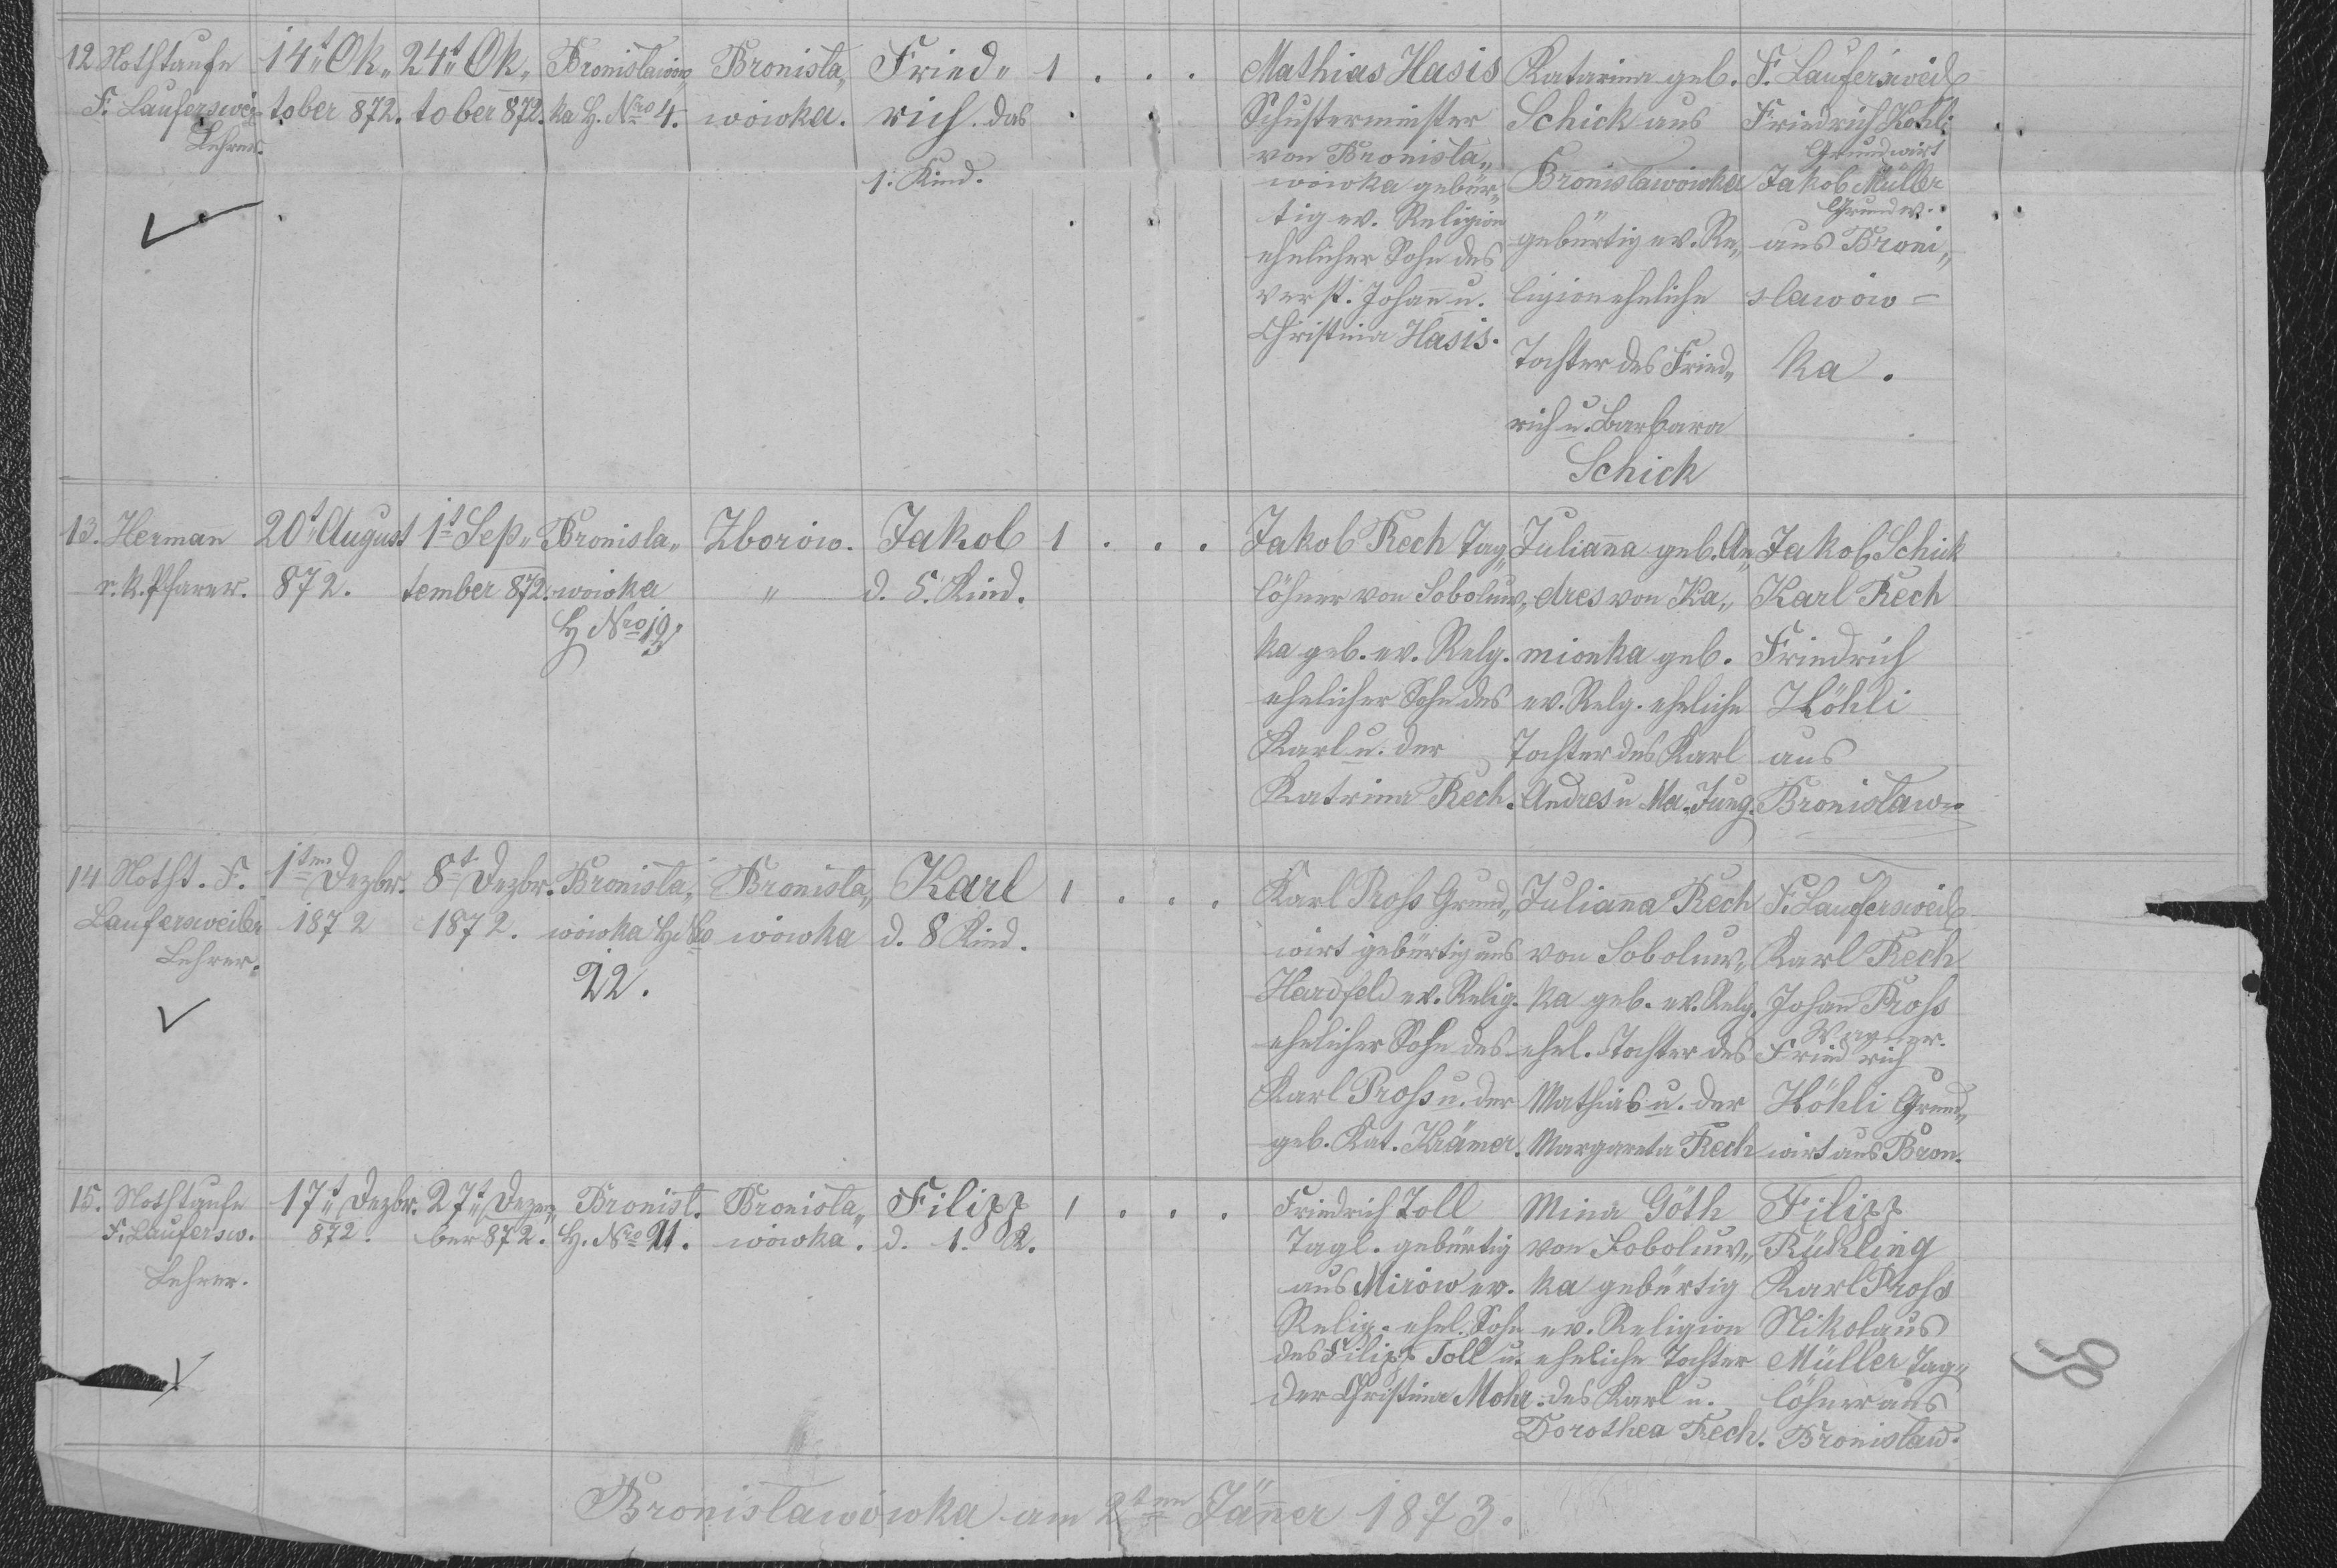 12 Nothtaufe
F. Laufersweil
Lehrer.
14t. Ok„
tober 872.
24t. Ok„
tober 872.
Bronislawów„
ka H. Nro 4.
Bronisla„
wówka.
Fried„
rich. das
1. Kind.
1 . . .
Mathias Hasis
Schustermeister
von Bronisla„
wówka gebür„
tig ev. Religion
ehelicher Sohn des
verst. Johann u.
Christina Hasis.
Katarina geb.
Schick aus
Bronislawówka
gebürtig ev. Re„
ligion eheliche
Tochter des Fried„
rich u. Barbara
Schick
F. Laufersweil
Friedrich Köhli
Grundwirt
Jakob Müller
Grundw.
aus Broni„
slawów-
ka.
13. Herman
r. k. Pfarrer.
20t. August
872.
1t Sep„
tember 872.
Bronisla„
wówka
H Nro 19
Zborów.
„
Jakob
d. 5. Kind.
1 . . .
Jakob Rech Tag„
löhner von Soboluw„
ka geb. ev. Relg.
ehelicher Sohn des
Karl u. der
Katrina Rech.
Julianna geb. An„
dres von Ka„
mionka geb.
ev. Relg. eheliche
Tochter des Karl
Andres u Ma. Jung.
Jakob Schick
Karl Rech
Friedrich
Köhli
aus
Bronislaw.
14 Notht. F.
Laufersweiler
Lehrer.
1ten Dezbr.
1872
8t Dezbr.
1872.
Bronisla„
wówka H Nro
22.
Bronisla„
wówka
Karl
d. 8 Kind.
1 . . .
Karl Pross Grund„
wirt gebürtig aus
Hardfeld ev. Relig.
ehelicher Sohn des
Karl Pross u. der
geb. Kat. Krämer.
Julianna Rech
von Soboluw„
ka geb. ev. Relg.
ehel. Tochter des
Mathias u. der
Margareta Rech
F. Laufersweil
Karl Rech
Johann Pross
Wagner.
Friedrich
Köhli Grund„
wirt aus Bron.
15. Nothtaufe
F. Laufersw.
Lehrer.
17t. Dezbr.
872.
27t. Dezem„
ber 872.
Bronisl.
H. Nro 21.
Bronisla„
wówka.
Filipp
d. 1. K.
1 . . .
Friedrich Toll
Tagl. gebürtig
aus Mirów ev.
Relig. ehel. Sohn
des Filipp Toll u.
der Christina Mohr.
Mina Göth
von Soboluw„
ka gebürtig
ev. Religion
eheliche Tochter
des Karl u.
Dorothea Rech.
Filipp
Rückling
Karl Pross
Nikolaus
Müller Tag„
löhner aus
Bronislaw.
Bronislawówka am 2ten Jänner 1873.